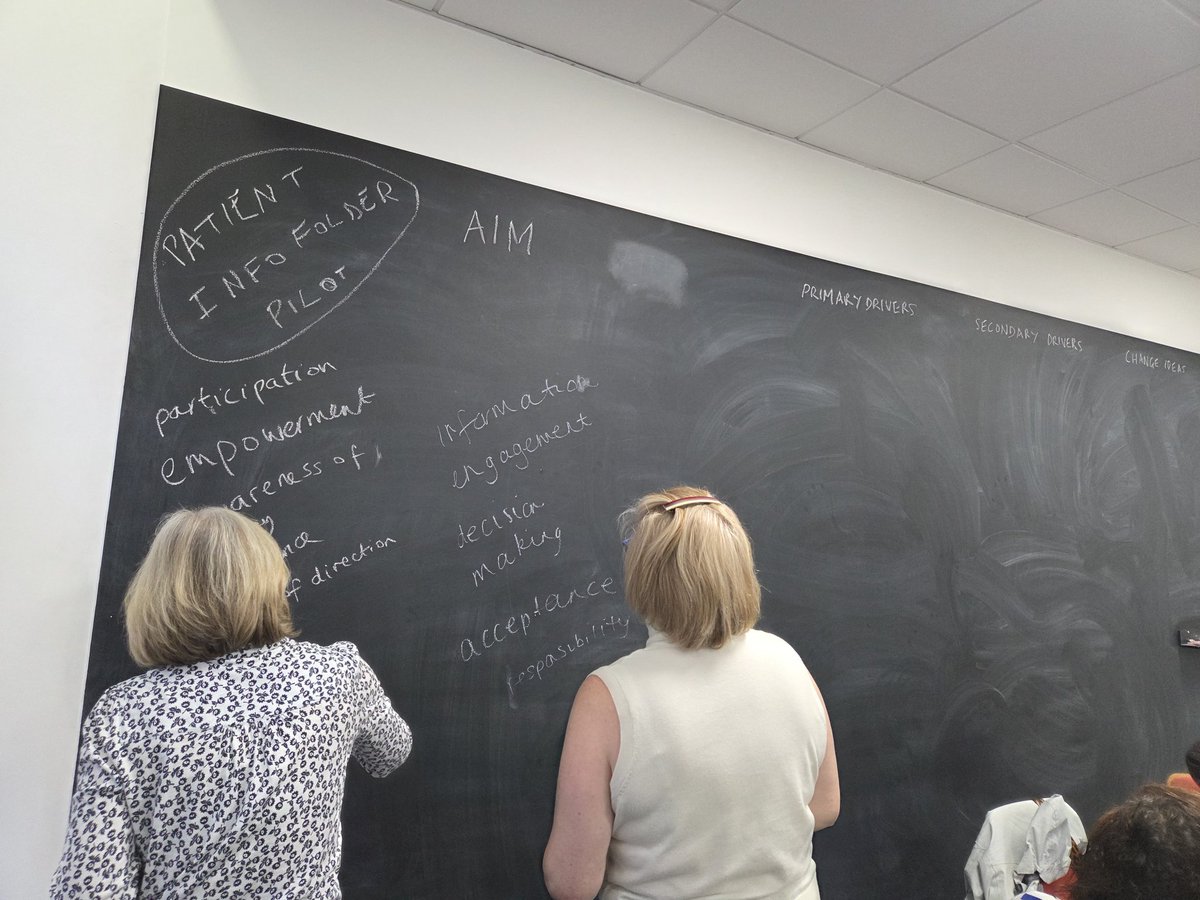 PATIENT
INFO FOLDER
PILOT
AIM
PRIMARY DRIVERS
SECONDARY DRIVERS
CHANGE IDEAS
participation
empowerment
of
of direction
information
engagement
decision
making
acceptance
respasibility